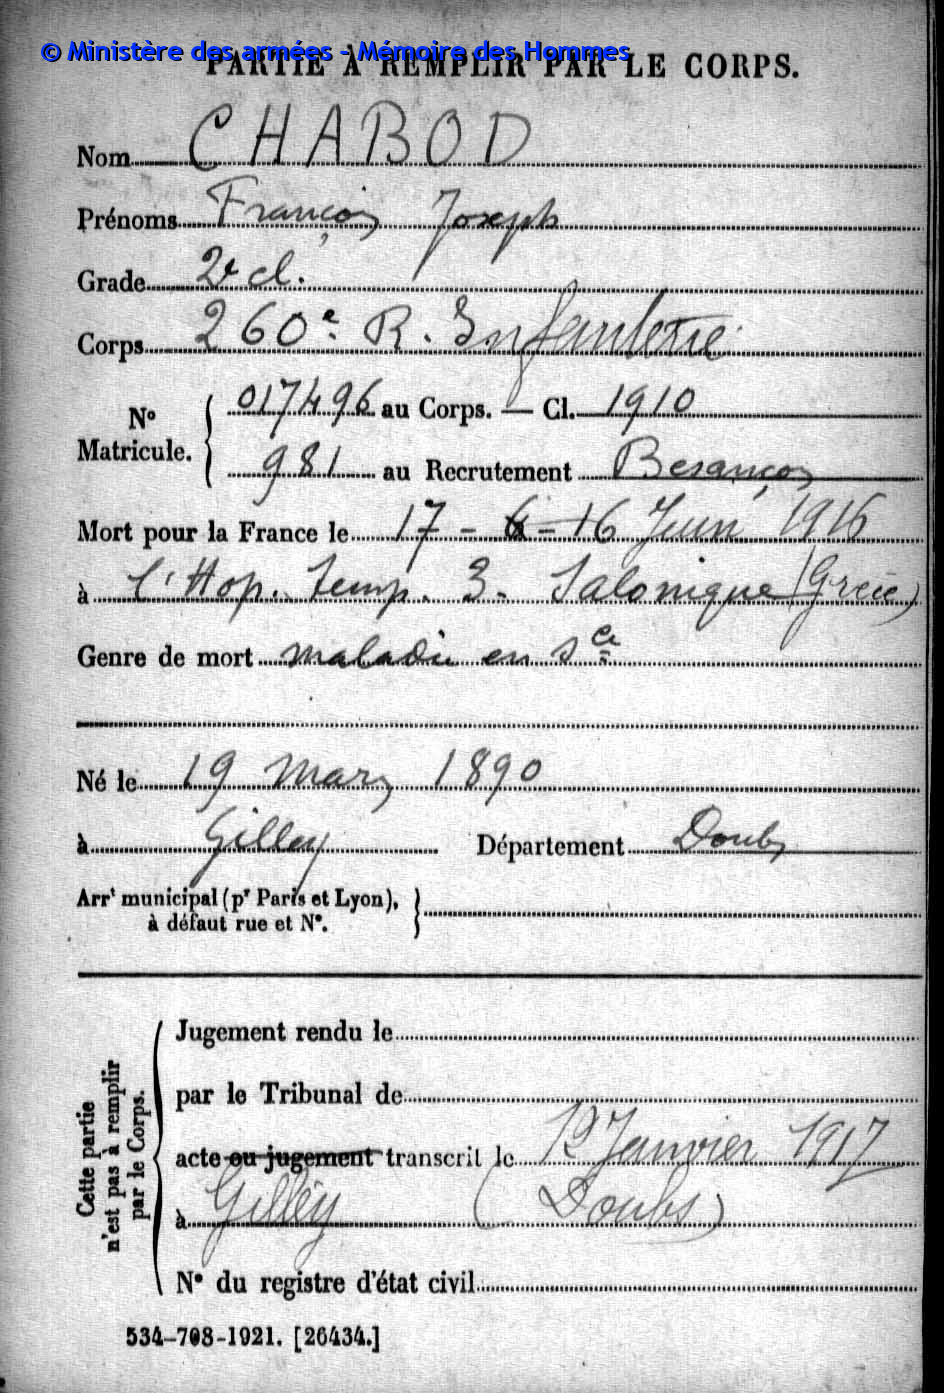 © Ministère des armées - Mémoire des Hommes
PARTIE À REMPLIR PAR LE CORPS.
Nom CHABOD
Prénoms François Joseph
Grade 2e cl.
Corps 260e R. Infanterie
N° Matricule. 017496 au Corps. — Cl. 1910
981 au Recrutement Besançon
Mort pour la France le 17 - 6 - 16 Juin 1916
à l'Hop. temp. 3. Salonique (Grèce)
Genre de mort maladie en sce
Né le 19 Mars 1890
à Gilley Département Doubs
Arrt municipal (pr Paris et Lyon),
à défaut rue et N°.
Cette partie
n'est pas à remplir
par le Corps.
Jugement rendu le
par le Tribunal de
acte ou jugement transcrit le Janvier 1917
à Gilley (Doubs)
N° du registre d'état civil
534-708-1921. [26434.]